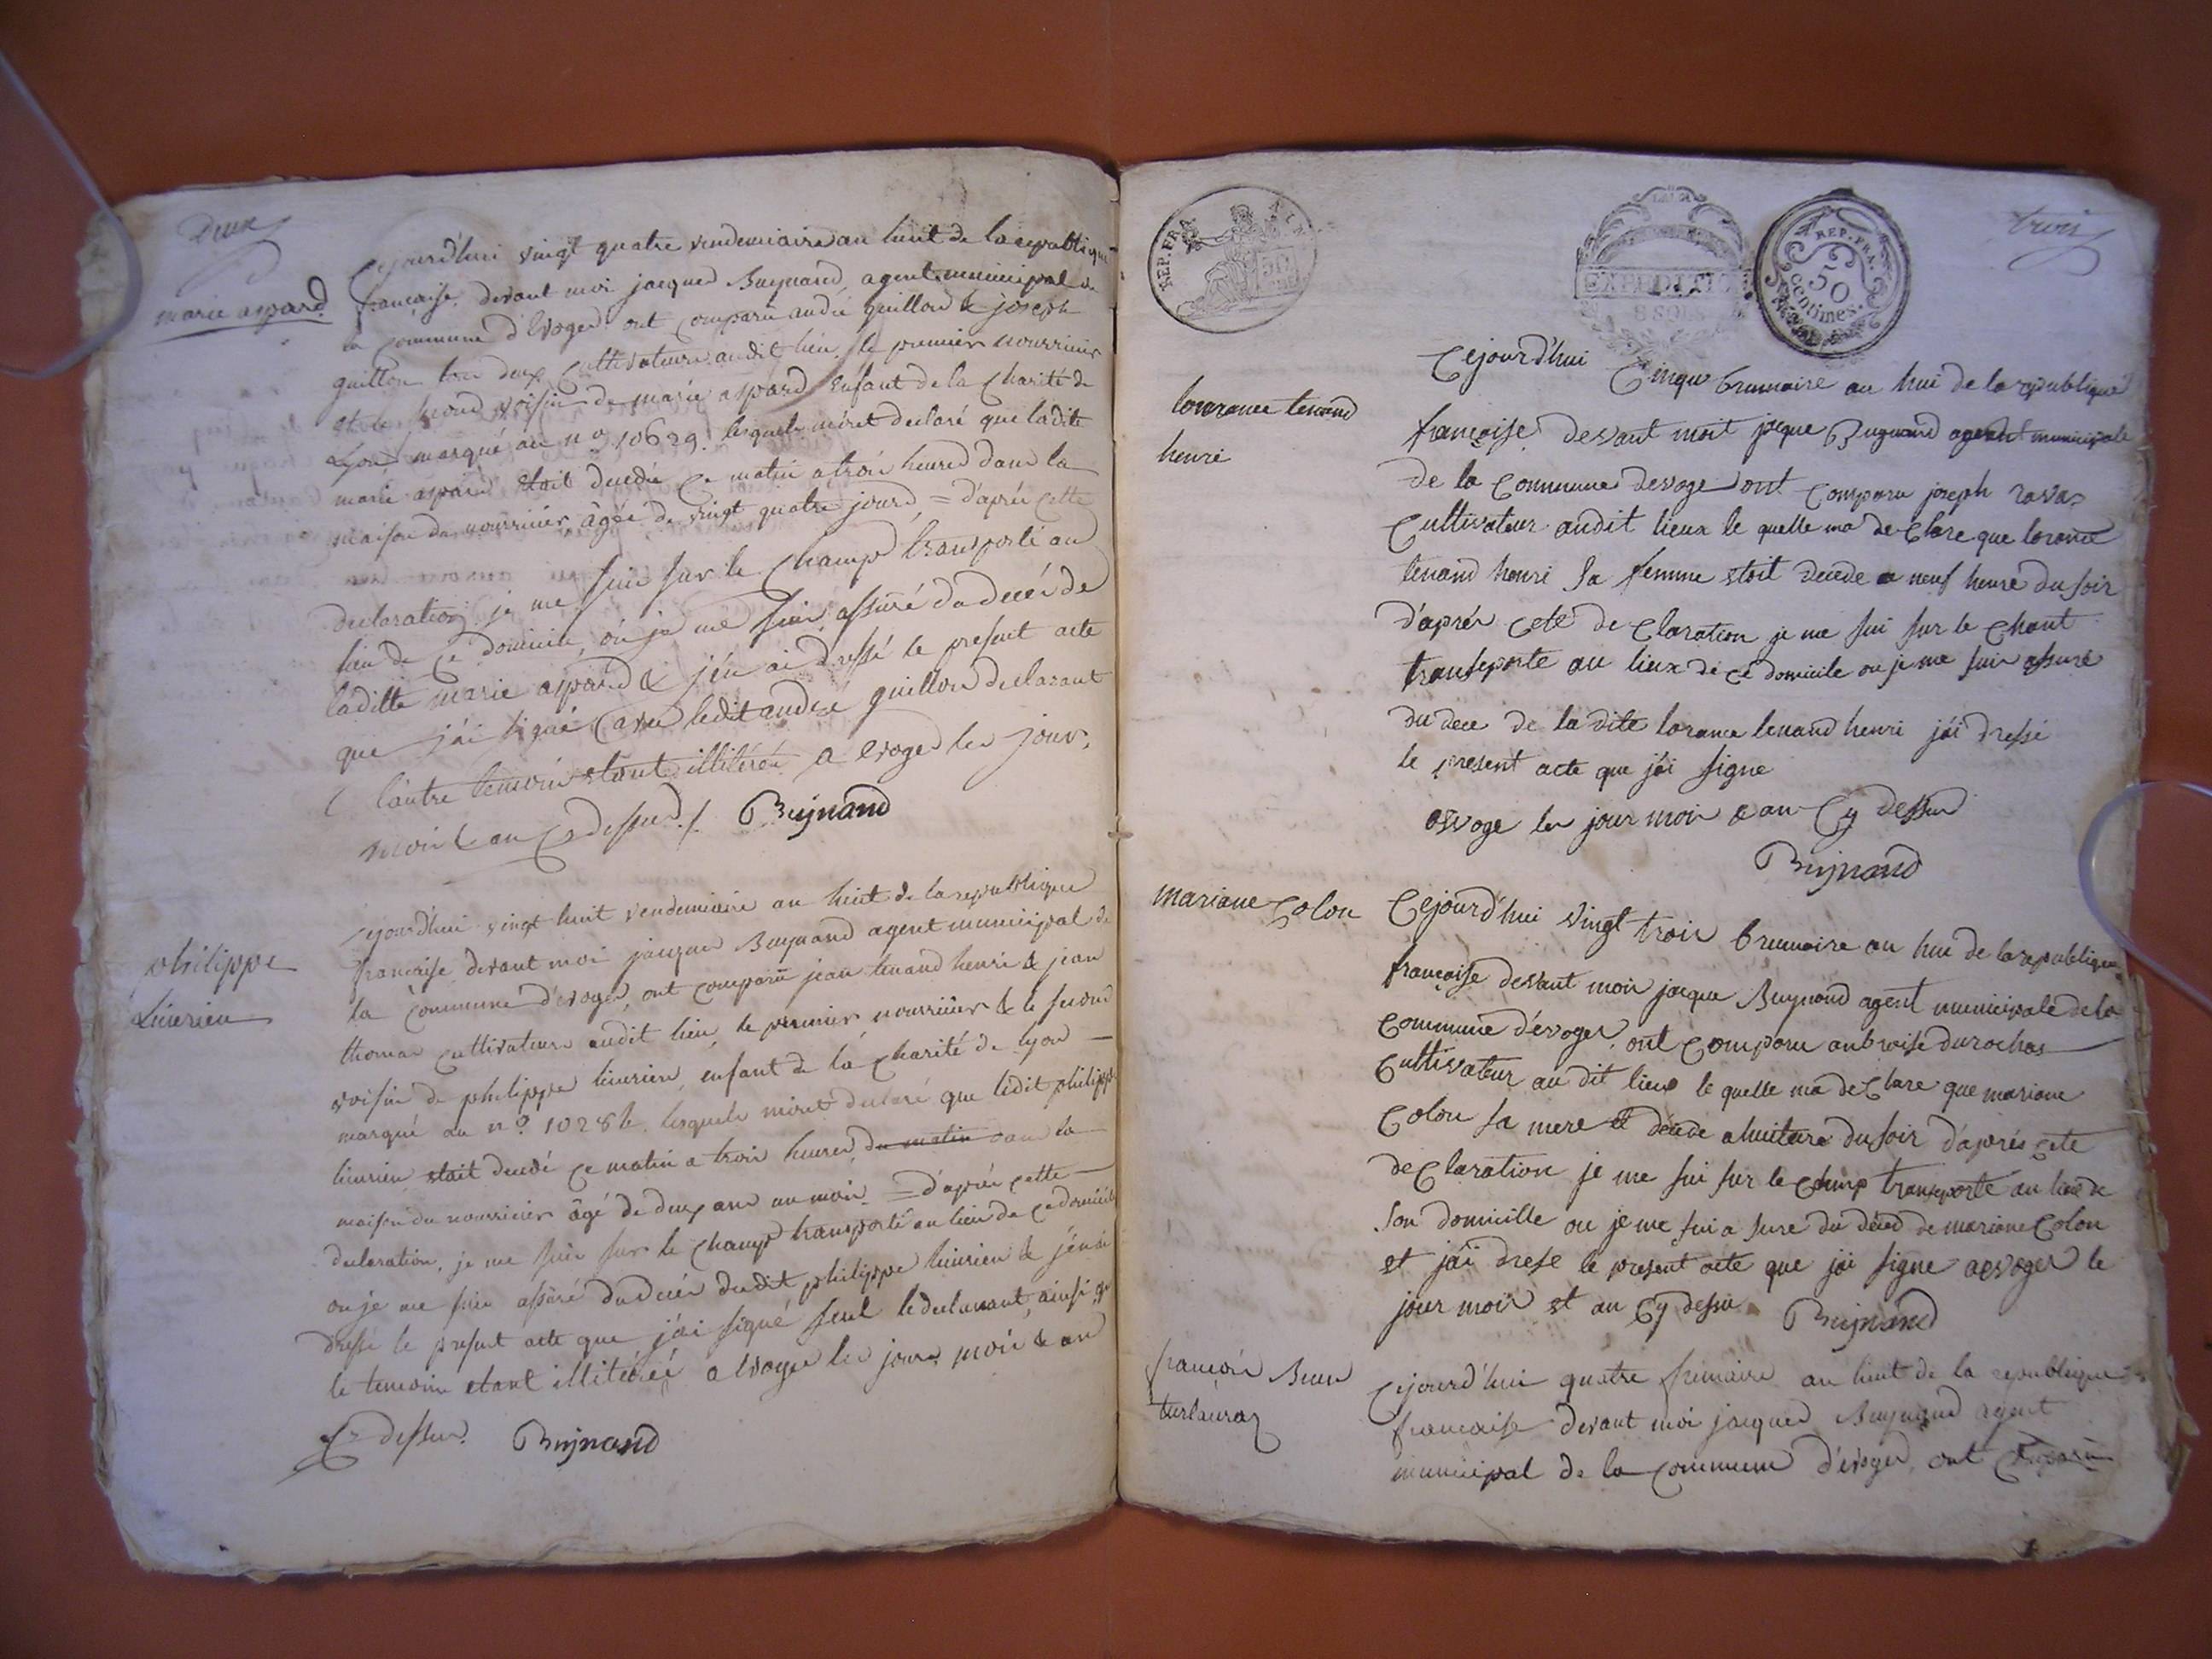 Deux
marie aspard
Cejourd'hui vingt quatre vendemiaire an huit de la republique
française, devant moi jacques Buynand, agent municipal de
la commune d'Evoges ont comparu andré guillon & joseph
guillon tous deux cultivateurs audit lieu, le premier nourricier
et le second voisin de marie aspard enfant de la Charité de
Lyon, marqué au n° 10629. lesquels m'ont declaré que ladite
marie aspard etoit decedée ce matin a trois heures dans la
maison du nourricier, âgée de vingt quatre jours, = d'après cette
declaration je me suis sur le champ transporté au
lieu de ce domicile, où je me suis assuré du decès de
laditte marie aspard & j'en ai dressé le present acte
que j'ai signé avec ledit andré guillon declarant
l'autre temoin etant illitéré a evoges les jour,
mois & an cy dessus ./. Buynand
philippe
Linerieu
Cejourd'hui vingt huit vendemiaire an huit de la republique
française devant moi jacques Buynand agent municipal de
la commune d'evoges, ont comparu jean tenand henri & jean
thomas cultivateurs audit lieu, le premier nourricier & le second
voisin de philippe linerieu, enfant de la Charité de lyon
marqué au n°. lesquels m'ont declaré que ledit philippe
linerieu etait decedé ce matin a trois heures du matin dans la
maison du nourricier âgé de deux ans un mois = d'après cette
declaration, je me suis sur le champ transporté au lieu de ce domicile
ou je me suis assuré du decès dudit philippe linerieu & j'en ai
dresse le present acte que j'ai signé seul le declarant, ainsi que
le temoins etant illitéré a Evoges les jours mois & an
Cy dessus. Buynand
trois
REP. FRA
EXPEDITION
REP. FRA.
50
centimes
lourance tenand
henri
Cejourd'hui Cinque brumaire an hui de la republique
françoise devant moit jacque Buynand agendt municipale
de la Commune desvoge ont comparu joseph ravas
Cultivateur audit lieux le quelle ma de Clare que lorance
tenand henri Sa femme etoit decede a neuf heure du soir
d'après cete de Claration je me sui sur le Chant
transeporte au lieux de ce domicile ou je me suis assuré
du dece de la dite lorance tenand henri j'ai dressé
le present acte que j'ai signe
esvoge les jour mois & an Cy dessus
Buynand
Mariane Colon
Cejourd'hui vingt trois brumaire an hui de la republique
françoise devant mois jacque Buynand agent municipale de la
Commune d'evoges, ont Comparu anbroise durochas
Cultivateur au dit lieux le quelle ma de Clare que mariane
Colon sa mere et décéde a huiteure du soir d'aprés cete
de Claration je me sui sur le champ transeporté au lieu de
son domicille ou je me sui a sure du déced de mariane Colon
et j'ai drese le present acte que j'ai signe a evoges le
jour mois et an Cy dessu Buynand
françois
turlauraz
Cejourd'hui quatre frimaire an huit de la republique
française devant moi jacques Buynand agent
municipal de la commune d'évoges, ont Comparu